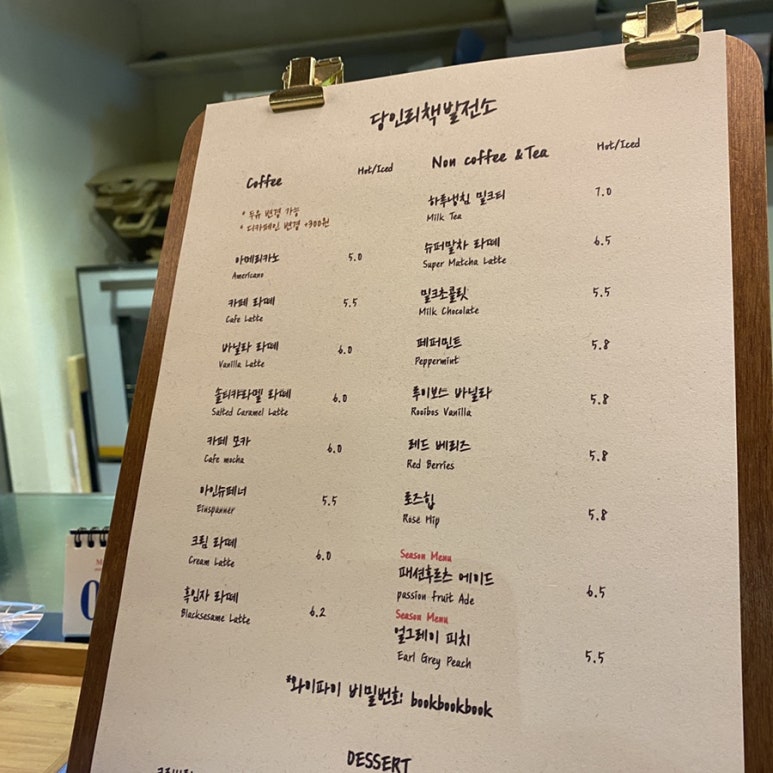 당인리책발전소
Coffee Hot/Iced
* 두유 변경 가능
* 디카페인 변경 +300원
아메리카노 5.0
Americano
카페 라떼 5.5
Cafe Latte
바닐라 라떼 6.0
Vanilla Latte
솔티캬라멜 라떼 6.0
Salted Caramel Latte
카페 모카 6.0
Cafe mocha
아인슈페너 5.5
Einspanner
크림 라떼 6.0
Cream Latte
흑임자 라떼 6.2
Blacksesame Latte
Non coffee & Tea Hot/Iced
하루냉침 밀크티 7.0
Milk Tea
슈퍼말차 라떼 6.5
Super Matcha Latte
밀크초콜릿 5.5
Milk Chocolate
페퍼민트 5.8
Peppermint
루이보스 바닐라 5.8
Rooibos Vanilla
레드 베리즈 5.8
Red Berries
로즈힙 5.8
Rose Hip
Season Menu
패션후르츠 에이드 6.5
passion fruit Ade
Season Menu
얼그레이 피치 5.5
Earl Grey Peach
*와이파이 비밀번호: bookbookbook
DESSERT